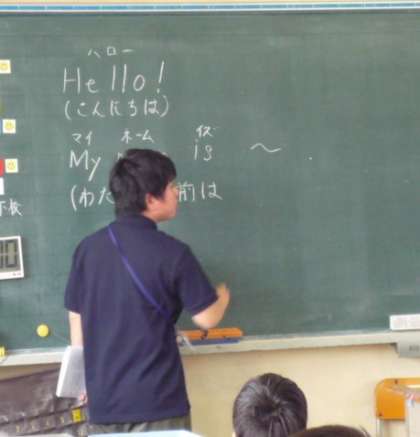 ハロー
Hello!
(こんにちは)
マイ ネーム イズ
My is ～ .
(わた 前は
下校